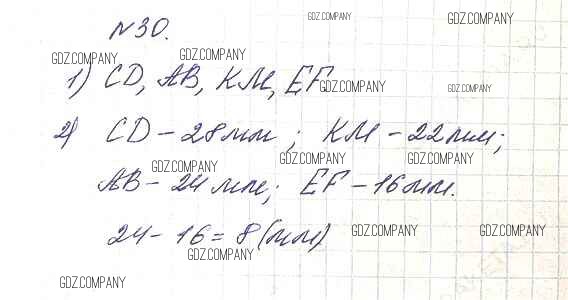 №30.
1) CD, AB, KM, EF
2) CD - 28мм; KM - 22мм;
AB - 24мм; EF - 16мм.
24 - 16 = 8 (мм)
GDZ.COMPANY
GDZ.COMPANY
GDZ.COMPANY
GDZ.COMPANY
GDZ.COMPANY
GDZ.COMPANY
GDZ.COMPANY
GDZ.COMPANY
GDZ.COMPANY
GDZ.COMPANY
GDZ.COMPANY
GDZ.COMPANY
GDZ.COMPANY
GDZ.COMPANY